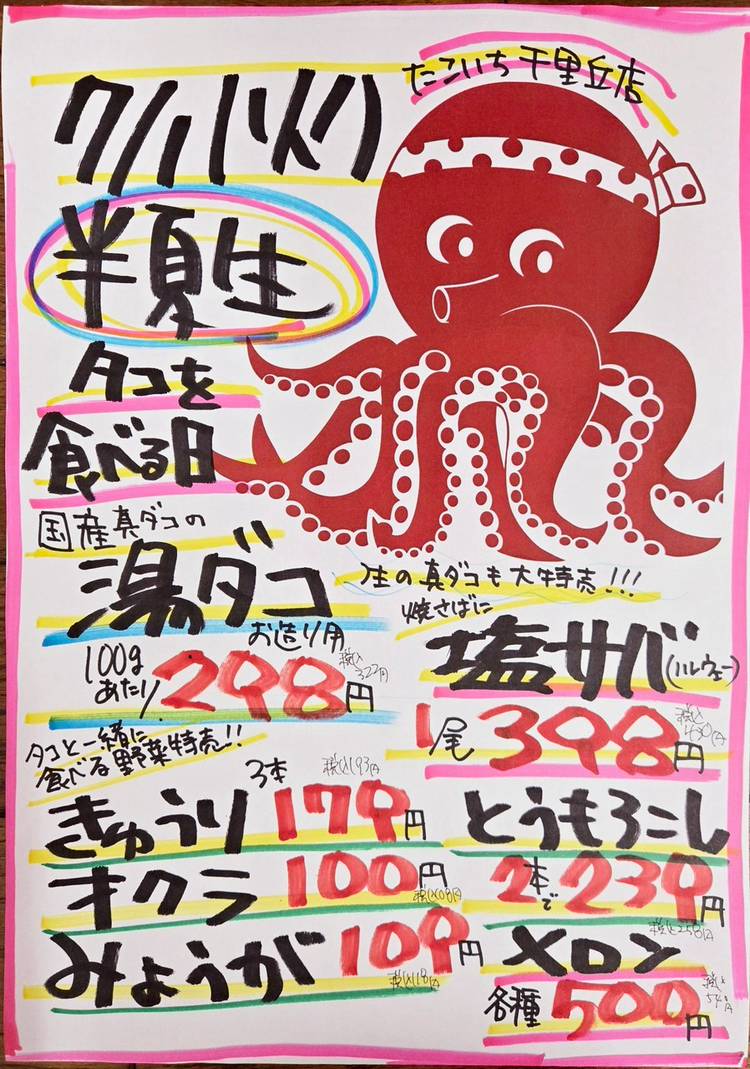 たこいち 千里丘店
7/1 火
半夏生
タコを
食べる日
国産真ダコの
湯ダコ
お造り用
100g
あたり
298円
税込322円
生の真ダコも大特売!!!
焼さばに
塩サバ(ノルウェー)
1尾 398円
税込430円
タコと一緒に
食べる野菜特売!!
きゅうり 3本 179円
税込193円
オクラ 100円
税込108円
みょうが 109円
税込118円
とうもろこし
2本で 239円
税込258円
メロン
各種 500円
税込540円